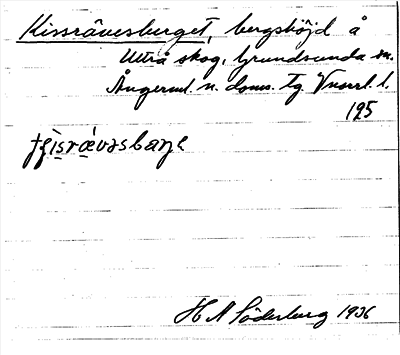 Kissrävesberget, bergshöjd å
Utterå skog, Grundsunda sn.
Ångerml. n. doms. tg. Vnorrl. l.
195
H A Söderberg 1936